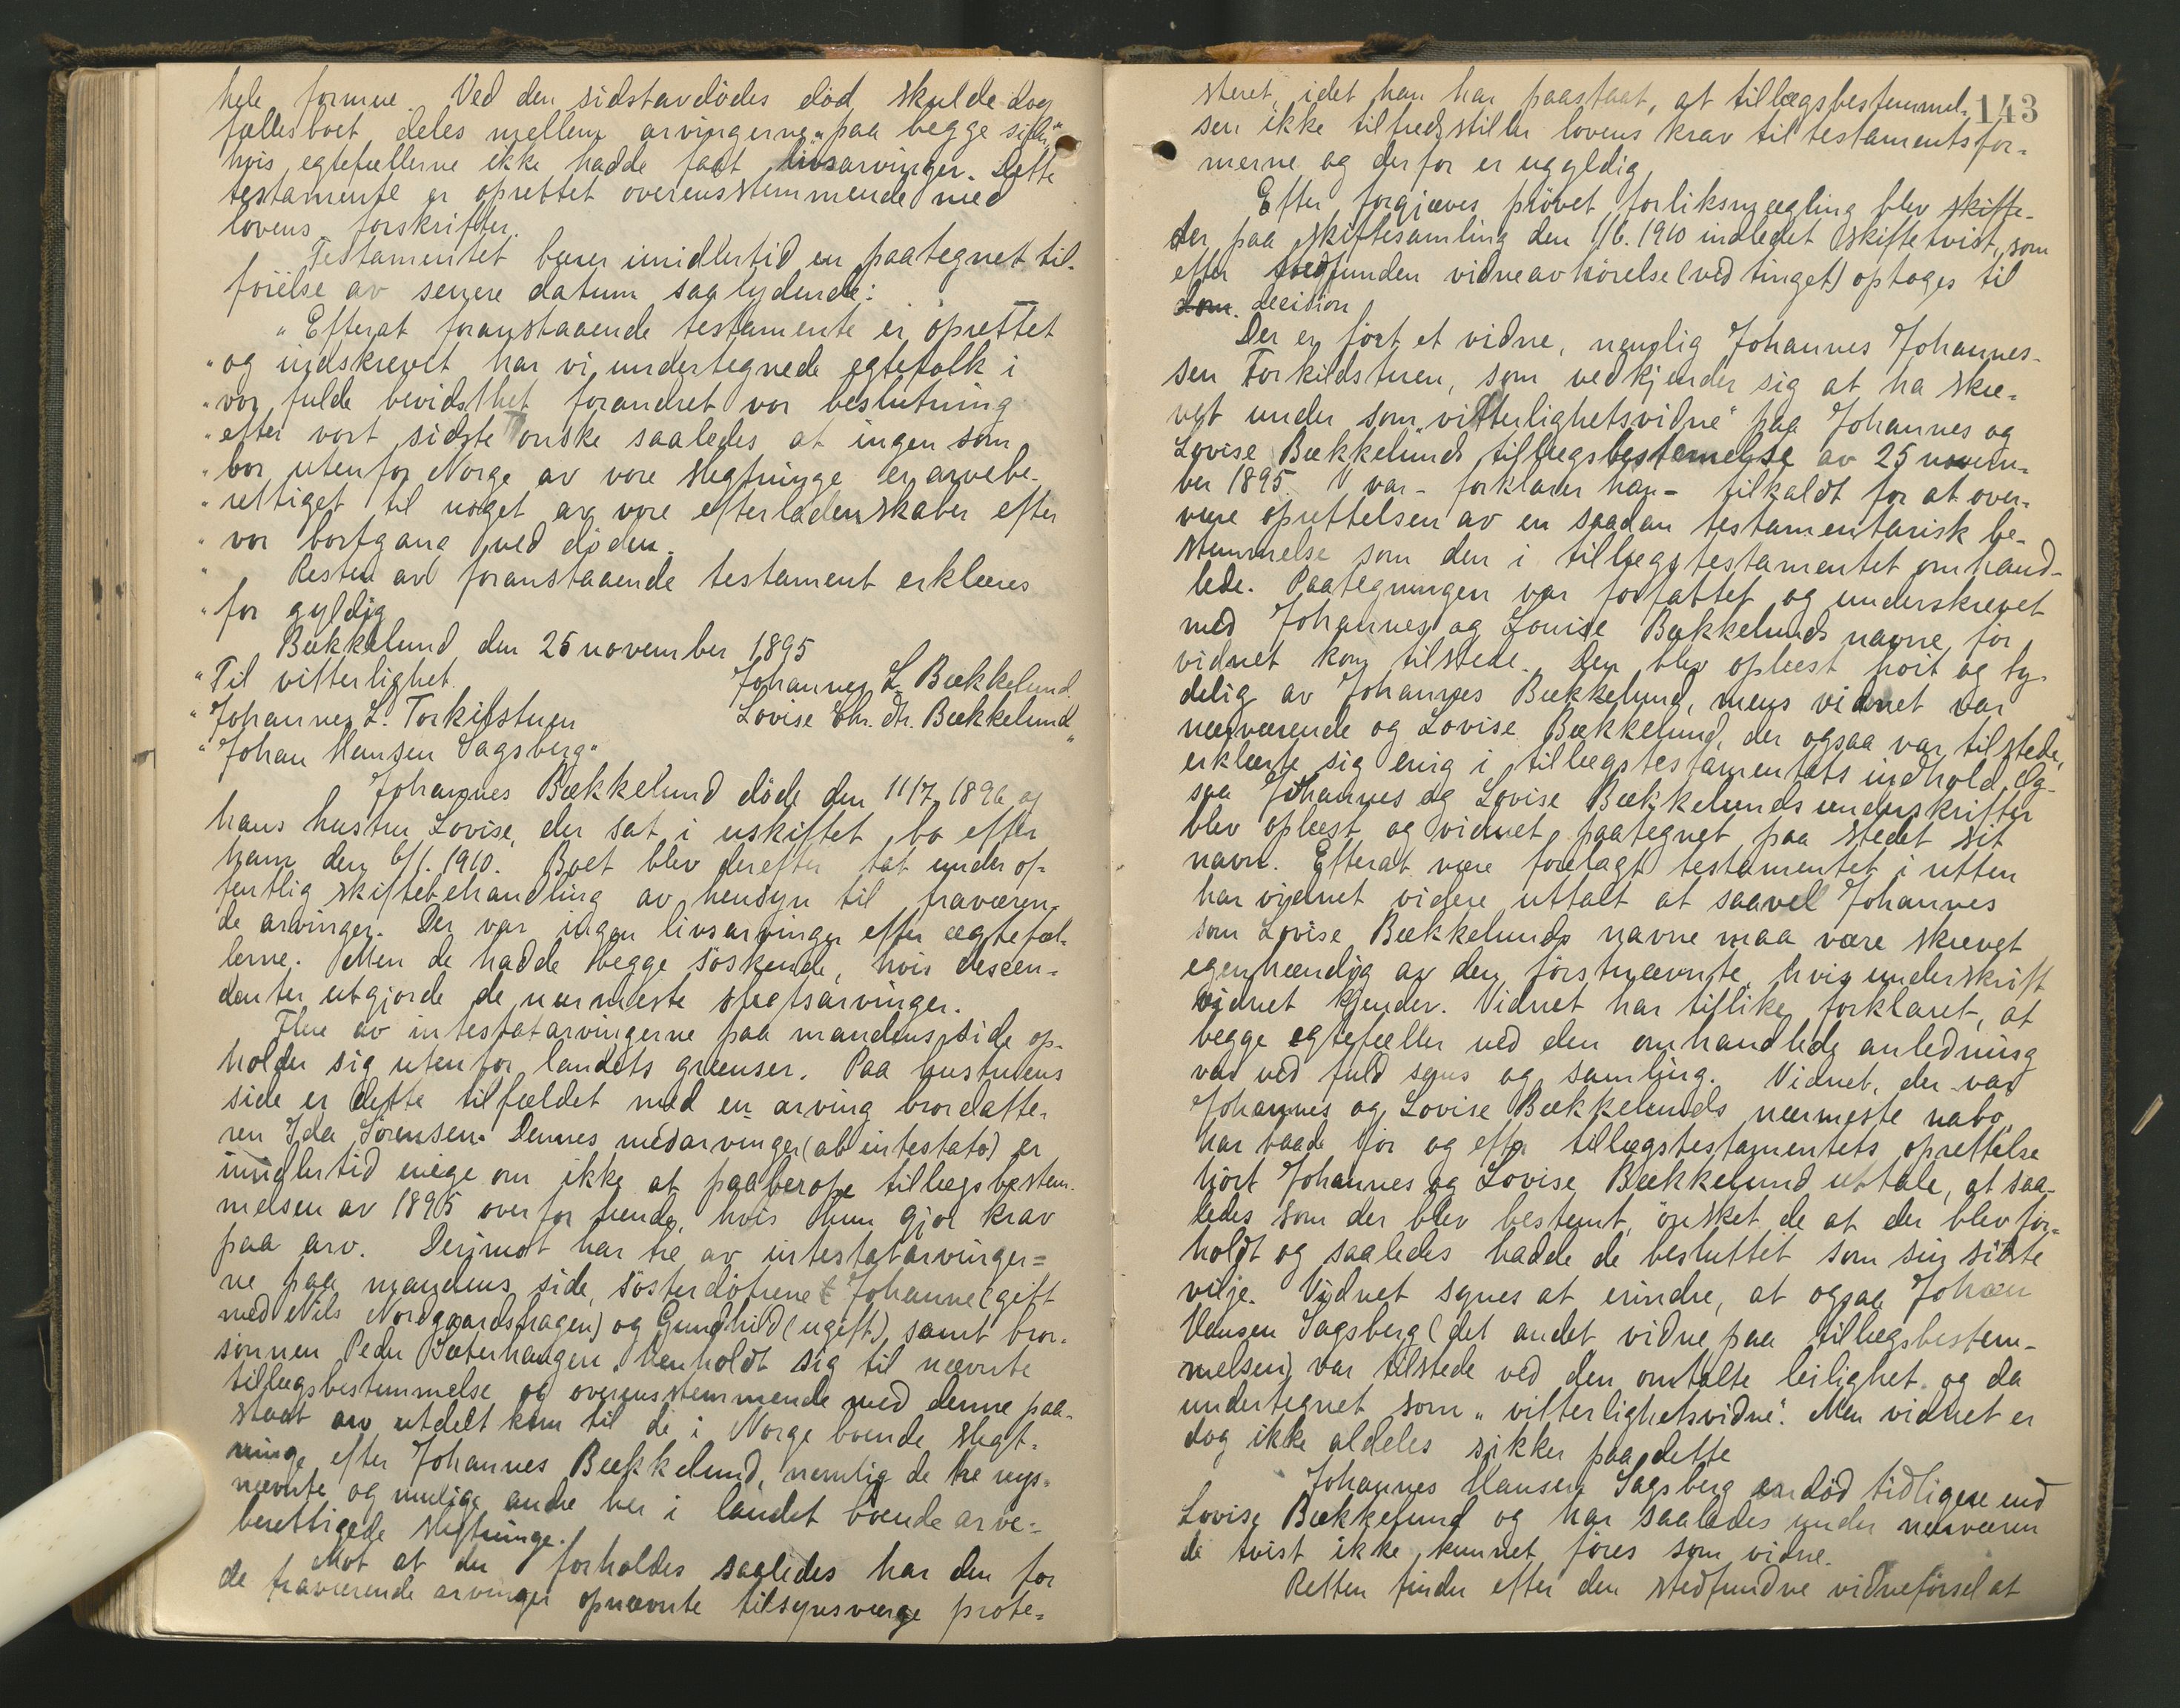 hele formue. Ved den sidstavdødes død skulde dog
fællesboet deles mellem arvingerne "paa begge sider,"
hvis egtefællerne ikke hadde faat livsarvinger. Dette
testamente er oprettet overensstemmende med
lovens forskrifter.
Testamentet bærer imidlertid en paategnet til-
føielse av senere datum saalydende:
"Efterat foranstaaende testamente er oprettet
"og indskrevet har vi undertegnede egtefolk i
"vor fulde bevidsthet forandret vor beslutning
"efter vort sidste ønske saaledes at ingen som
"bor utenfor Norge av vore slegtninge er arvebe-
"rettiget til noget av vore efterladenskaber efter
"vor bortgang ved døden.
" Resten av foranstaaende testament erklæres
"for gyldig
Bækkelund den 25 november 1895
"Til vitterlighet. Johannes L. Bækkelund.
"Johannes L. Torkilstuen Lovise Chr. dtr. Bækkelund"
"Johan Hansen Sagsberg"
Johannes Bækkelund døde den 11/7 1896 og
hans hustru Lovise, der sat i uskiftet bo efter
ham den 6/1. 1910. Boet blev derefter tat under of-
fentlig skiftebehandling av hensyn til fraværen-
de arvinger. Der var ingen livsarvinger efter egtefæl-
lerne. Men de hadde begge søskende, hvis descen-
denter utgjorde de nærmeste slegtsarvinger.
Flere av intestatarvingerne paa mandens side op-
holder sig utenfor landets grænser. Paa hustruens
side er dette tilfældet med en arving brordatte-
ren Ida Sørensen. Dennes medarvinger (ab intestato) er
imidlertid enige om ikke at paaberope tillægsbestem-
melsen av 1895 overfor hende, hvis hun gjør krav
paa arv. Derimot har tre av intestatarvinger=
ne paa mandens side, søsterdøtrene Johanne (gift
med Nils Nordgaardshagen) og Gundhild (ugift), samt bror-
sønnen Peder Sæterhaugen henholdt sig til nævnte
tillægsbestemmelse og overensstemmende med denne paa-
staat arv utdelt kun til de i Norge boende slegt-
ninge efter Johannes Bækkelund, nemlig de tre nys-
nævnte og mulige andre her i landet boende arve-
berettigede slegtninge.
Mot at der forholdes saaledes har den for
de fraværende arvinger opnævnte tilsynsværge prote-
143
steret, idet han har paastaat, at tillægsbestemmel-
sen ikke tilfredsstiller lovens krav til testamentsfor-
merne og derfor er ugyldig
Efter forgjæves prøvet forliksmægling blev skifte-
der paa skiftesamling den 1/6. 1910 indledet skiftetvist, som
efter stedfunden vidneavhørelse (ved tinget) optoges til
dom. decision
Der er ført et vidne, nemlig Johannes Johannes-
sen Torkildstuen, som vedkjender sig at ha skre-
vet under som "vitterlighetsvidne" paa Johannes og
Lovise Bækkelunds tillægsbestemmelse av 25 novem-
ber 1895. V var - forklarer han - tilkaldt for at over-
være oprettelsen av en saadan testamentarisk be-
stemmelse som den i tillægstestamentet omhand-
lede. Paategningen var forfattet og underskrevet
med Johannes og Lovise Bækkelunds navne før
vidnet kom tilstede. Den blev oplæst høit og ty-
delig av Johannes Bækkelund, mens vidnet var
nærværende og Lovise Bækkelund, der ogsaa var tilstede,
erklærte sig enig i tillægstestamentets indhold. Og-
saa Johannes og Lovise Bækkelunds underskrifter
blev oplæst og vidnet paategnet paa stedet sit
navn. Efterat være forelagt testamentet i retten
har vidnet videre uttalt at saavel Johannes
som Lovise Bækkelunds navne maa være skrevet
egenhændig av den førstnævnte, hvis underskrift
vidnet kjender. Vidnet har tillike forklaret, at
begge egtefæller ved den omhandlede anledning
var ved fuld sans og samling. Vidnet, der var
Johannes og Lovise Bækkelunds nærmeste nabo,
har baade før og efter tillægstestamentets oprettelse
hørt Johannes og Lovise Bækkelund uttale, at saa-
ledes som der blev bestemt, ønsket de at der blev for-
holdt og saaledes hadde de besluttet som sin sidste
vilje. Vidnet synes at erindre, at ogsaa Johan
Hansen Sagsberg (det andet vidne paa tillægsbestem-
melsen) var tilstede ved den omtalte leilighet og da
undertegnet som "vitterlighetsvidne". Men vidnet er
dog ikke aldeles sikker paa dette
Johannes Hansen Sagsberg er død tidligere end
Lovise Bækkelund og har saaledes under nærværen
de tvist ikke kunnet føres som vidne.
Retten finder efter den stedfundne vidneførsel at